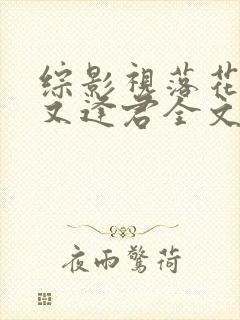 综影視落花
又逢君全文
夜雨驚荷